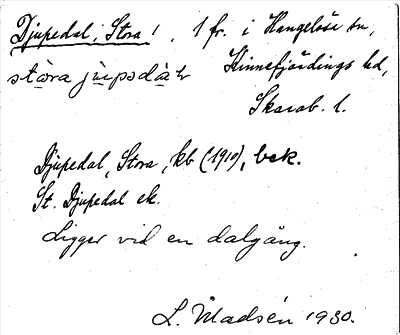 Djupedal, Stora!, 1 fr. i Hangelösa sn,
stòra jùpsdàɫ Kinnefjärdings hd,
Skarab. l.
Djupedal, Stora, kb (1910), bek.
St. Djupedal ek.
Ligger vid en dalgång.
L. Madsén 1930.